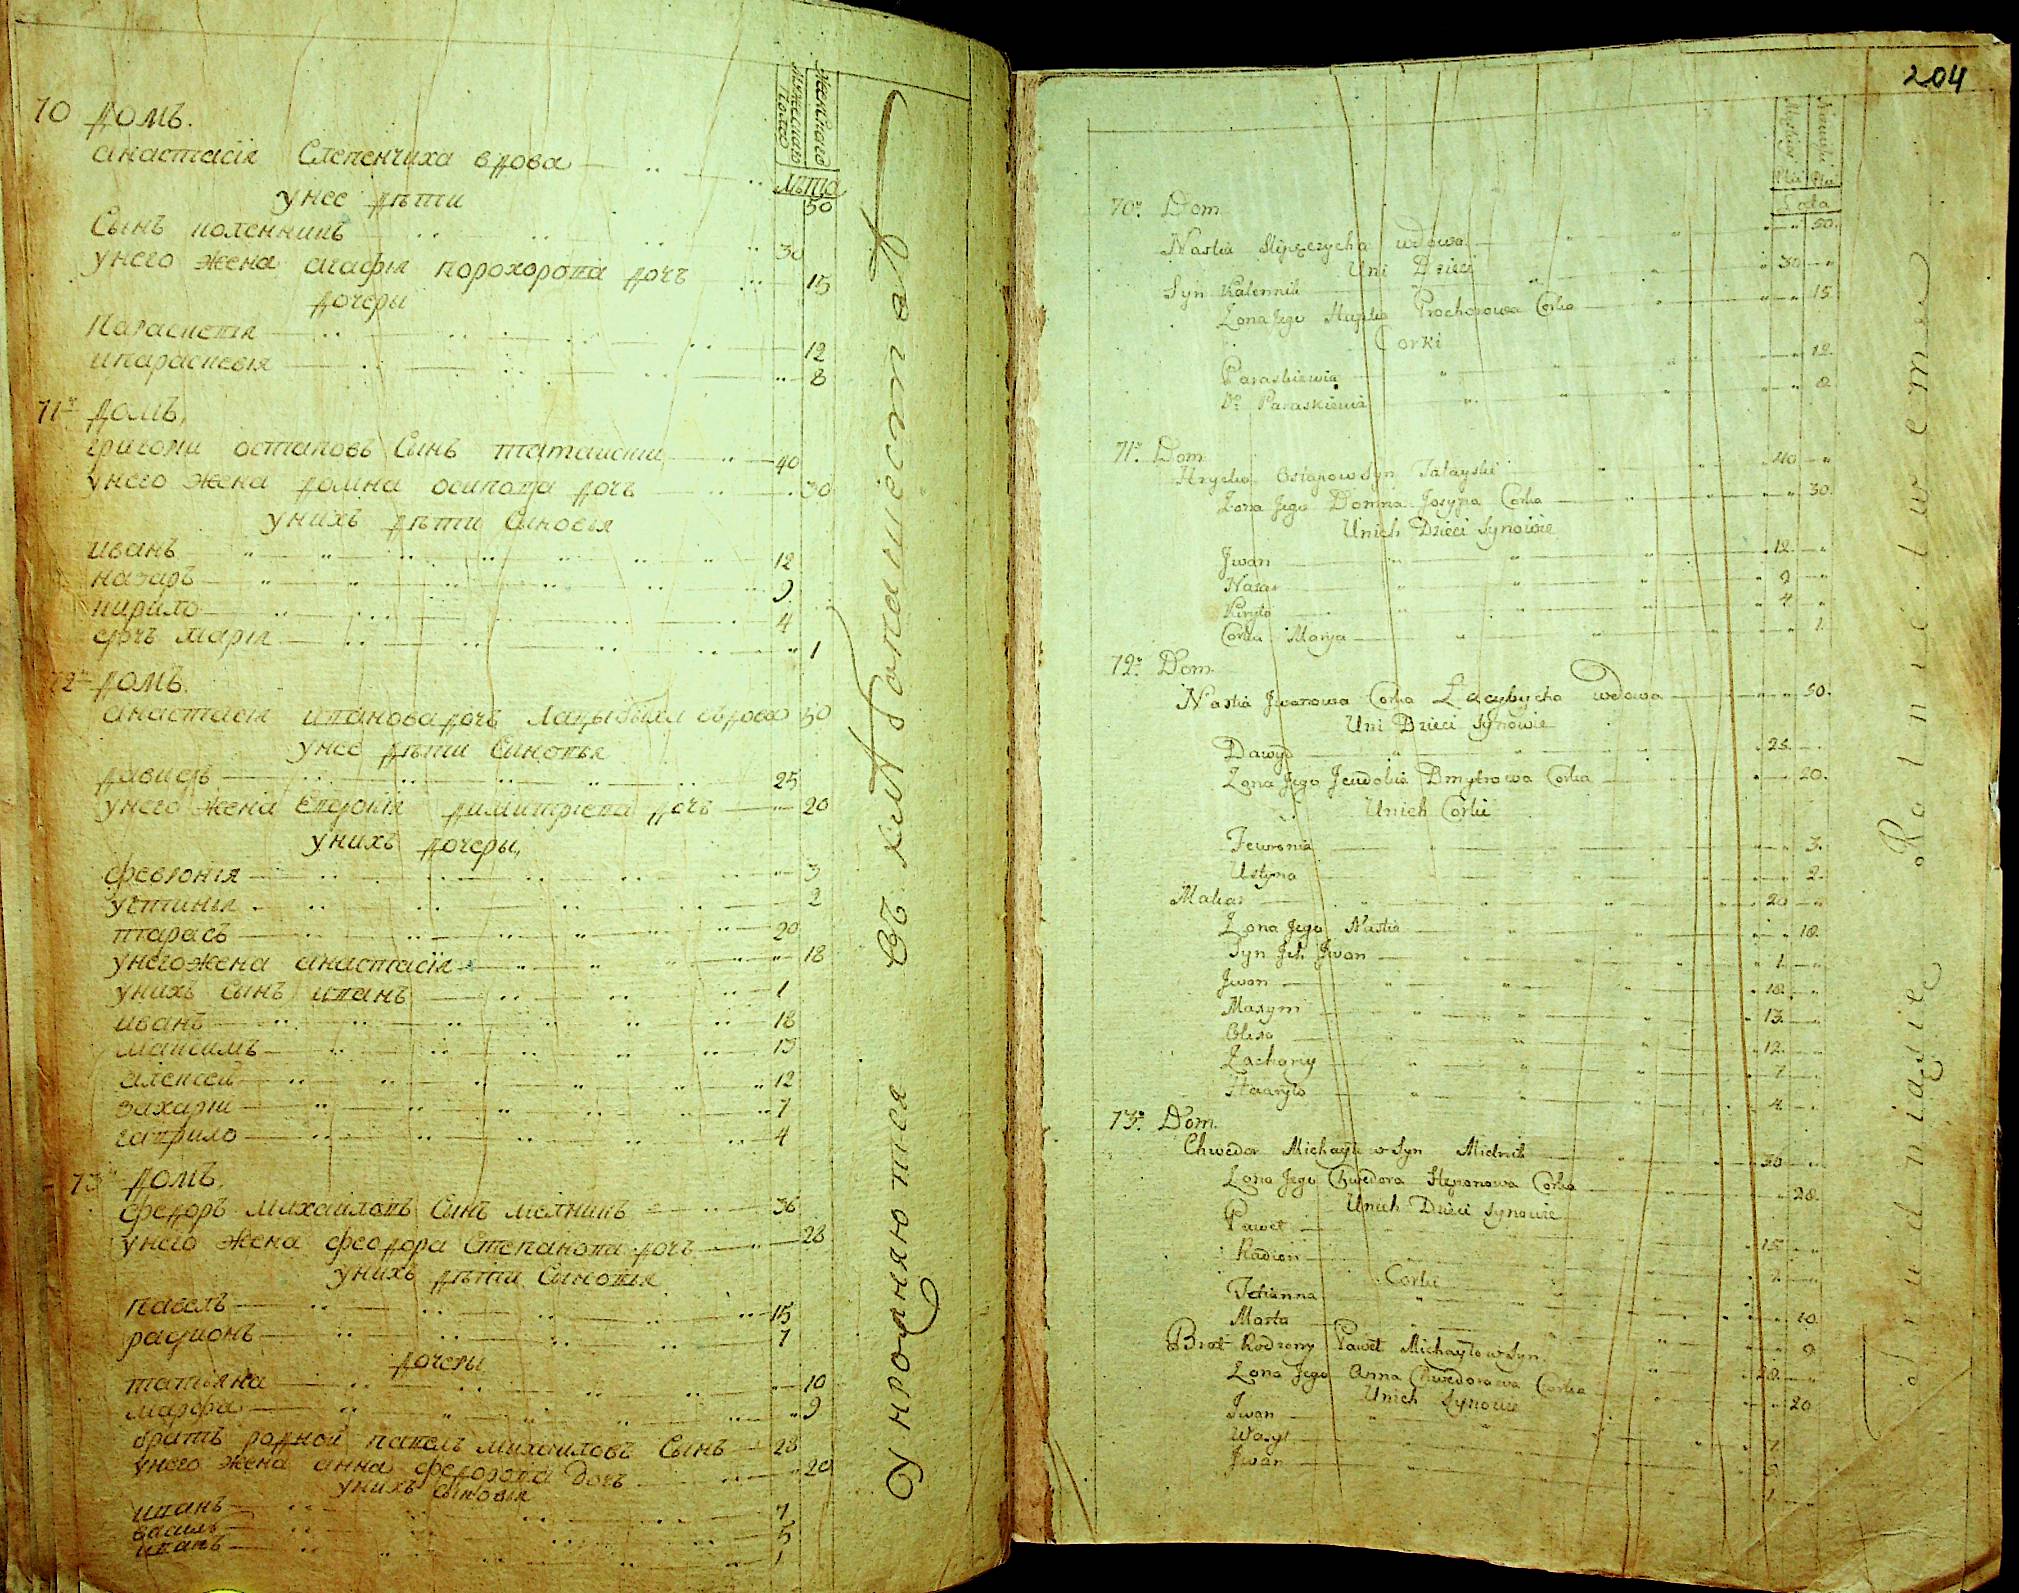 Женскаго
Мужескаго
полу
Лѣта
70 домъ.
анастасія Слепенчиха вдова 50
унее дѣти
Сынъ каленникъ 30
унего жена агафія порохорова дочъ 15
дочеры
Параскевія 12
ипараскевія 8
71й домъ.
григорій остаповъ Сынъ татаискій 40
унего жена домна осипова дочъ 30
унихъ дѣти Синовія
иванъ 12
назаръ 9
кирило 4
дочъ марія 1
72й домъ.
анастасія иванова дочъ Лацыбиха вдова 50
унее дѣти Синовія
давидъ 25
унего жена Евдокія димитріева дочъ 20
унихъ дочеры,
февронія 3
устинія 2
тарасъ 20
унего жена анастасія 18
унихъ Сынъ иванъ 1
иванъ 18
максимъ 13
алексей 12
захарій 7
гаврило 4
73й домъ.
федоръ михаиловъ Сынъ мелникъ 36
унего жена феодора Степанова дочъ 28
унихъ дѣти Синовія
павелъ 15
радионъ 7
дочеры
татіяна 10
марфа 9
братъ родной павелъ михаиловъ Сынъ 28
унего жена анна федорова дочъ 20
унихъ Сыновія
иванъ 7
василъ 5
иванъ 1
Упрожняются въ хлѣбопашествѣ
204
Lata
70o. Dom
Nastia Slipczycha wdowa 50.
Uni Dzieci
Syn Kalennik 30
Zona Jego Hapka Prochorowa Corka 15
Corki
Paraskiewia 12.
Do Paraskiewia 8
71o. Dom
Hrycko Ostapow Syn Tatayski 40
Zona Jego Domna Josypa Corka 30.
Unich Dzieci Synowie
Jwan 12.
Nazar 9
Kiryło 4
Corka Marya 1.
72o. Dom.
Nastia Jwanowa Corka Łacybycha wdowa 50.
Uni Dzieci Synowie
Dawyd 25.
Zona Jego Jewdokia Dmytrowa Corka 20.
Unich Corki
Fewronia 3.
Ustyna 2.
Makar 20
Zona Jego Nastia 18.
Syn Jch Jwan 1.
Jwan 18.
Maxym 13.
Olexa 12.
Zachary 7
Hawryło 4.
73o. Dom.
Chwedor Michayłow Syn Mielnik 30
Zona Jego Chwedora Steponowa Corka 28.
Unich Dzieci Synowie
Paweł 15
Radion 7
Corki
Tetianna 10
Marta 9
Brat Rodzony Paweł Michayłow Syn 28.
Zona Jego Anna Chwedorowa Corka 20
Unich Synowie
Jwan 7
Wasyl 5
Jwan 1
Trudnią się Rolnictwem